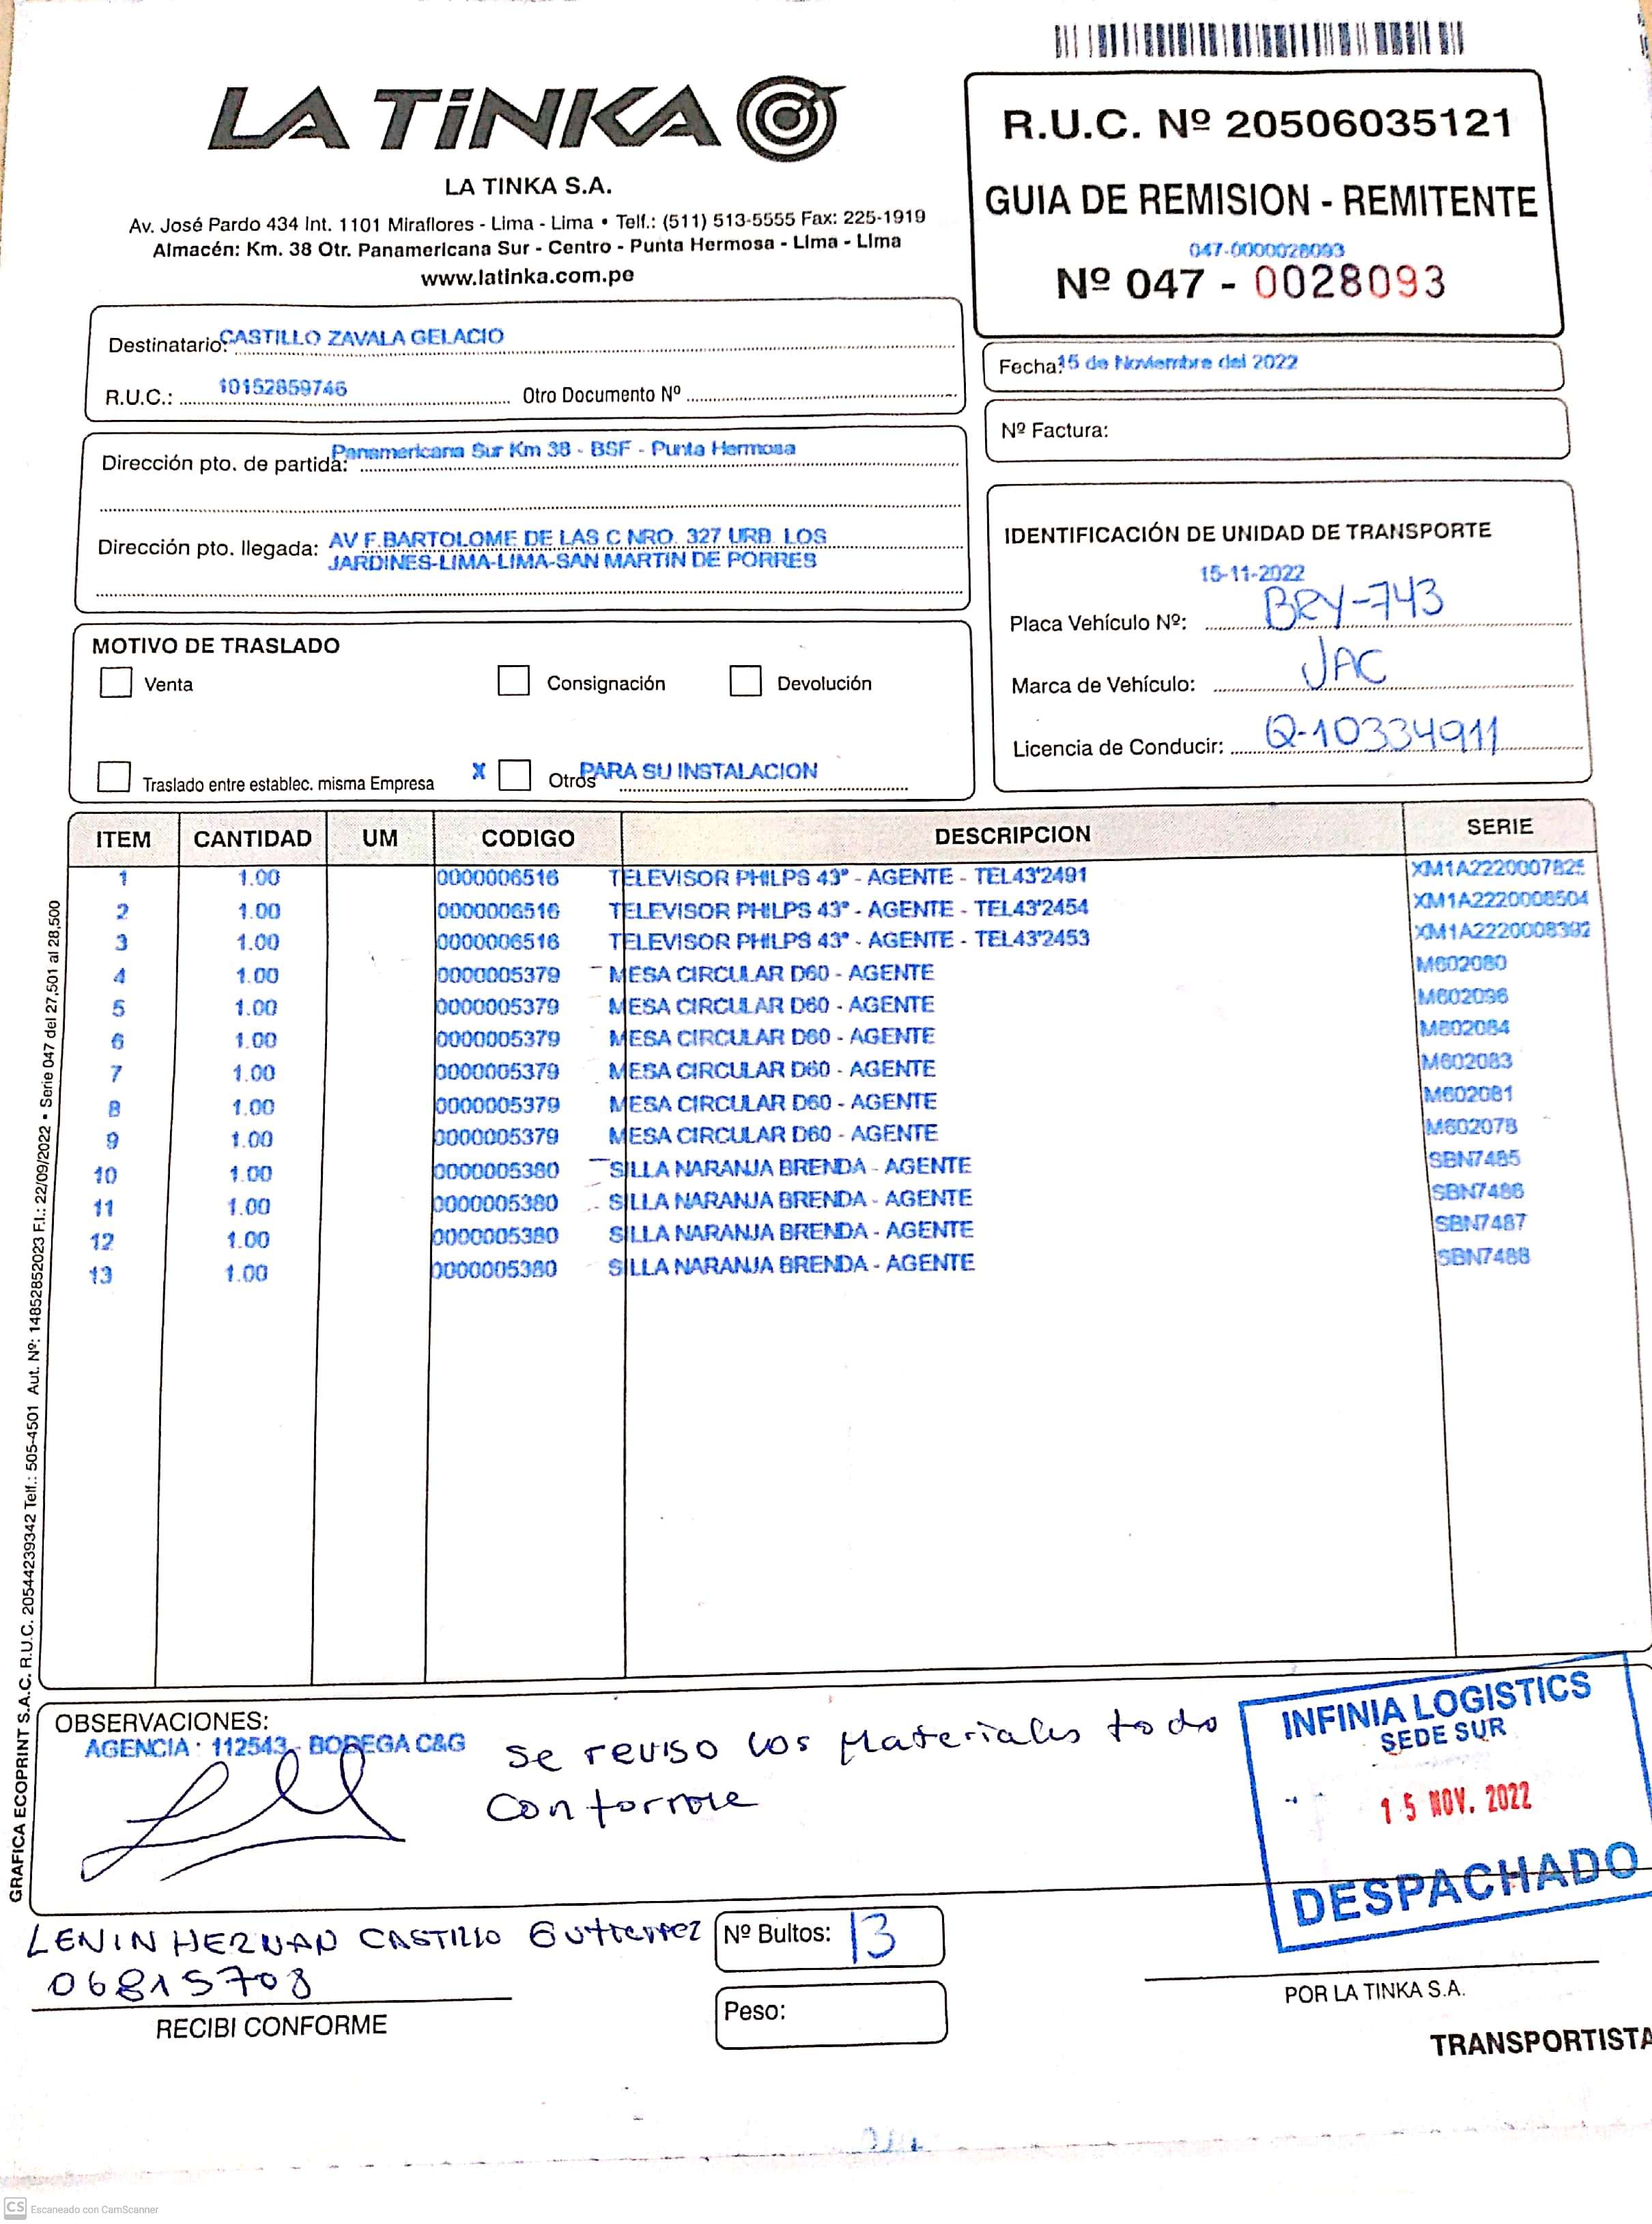 LA TiNKA
LA TINKA S.A.
Av. José Pardo 434 Int. 1101 Miraflores - Lima - Lima • Telf.: (511) 513-5555 Fax: 225-1919
Almacén: Km. 38 Otr. Panamericana Sur - Centro - Punta Hermosa - Lima - Lima
www.latinka.com.pe
R.U.C. Nº 20506035121
GUIA DE REMISION - REMITENTE
047-0000028093
Nº 047 - 0028093
Destinatario: CASTILLO ZAVALA GELACIO
R.U.C.: 10152859746 Otro Documento Nº
Fecha: 15 de Noviembre del 2022
Nº Factura:
Dirección pto. de partida: Panamericana Sur Km 38 - BSF - Punta Hermosa
Dirección pto. llegada: AV F.BARTOLOME DE LAS C NRO. 327 URB. LOS
JARDINES-LIMA-LIMA-SAN MARTIN DE PORRES
IDENTIFICACIÓN DE UNIDAD DE TRANSPORTE
15-11-2022
Placa Vehículo Nº: BRY-743
Marca de Vehículo: JAC
Licencia de Conducir: Q-10334911
MOTIVO DE TRASLADO
Venta Consignación Devolución
Traslado entre establec. misma Empresa X Otros PARA SU INSTALACION
ITEM CANTIDAD UM CODIGO DESCRIPCION SERIE
1 1.00 0000006516 TELEVISOR PHILPS 43" - AGENTE - TEL43'2491 XM1A2220007825
2 1.00 0000006516 TELEVISOR PHILPS 43" - AGENTE - TEL43'2454 XM1A2220008504
3 1.00 0000006516 TELEVISOR PHILPS 43" - AGENTE - TEL43'2453 XM1A2220008392
4 1.00 0000005379 MESA CIRCULAR D60 - AGENTE M602080
5 1.00 0000005379 MESA CIRCULAR D60 - AGENTE M602096
6 1.00 0000005379 MESA CIRCULAR D60 - AGENTE M602084
7 1.00 0000005379 MESA CIRCULAR D60 - AGENTE M602083
8 1.00 0000005379 MESA CIRCULAR D60 - AGENTE M602081
9 1.00 0000005379 MESA CIRCULAR D60 - AGENTE M602078
10 1.00 0000005380 SILLA NARANJA BRENDA - AGENTE SBN7485
11 1.00 0000005380 SILLA NARANJA BRENDA - AGENTE SBN7486
12 1.00 0000005380 SILLA NARANJA BRENDA - AGENTE SBN7487
13 1.00 0000005380 SILLA NARANJA BRENDA - AGENTE SBN7488
GRAFICA ECOPRINT S.A.C. R.U.C. 20544239342 Telf.: 505-4501 Aut. Nº: 1485285202​3 F.I.: 22/09/2022 • Serie 047 del 27,501 al 28,500
OBSERVACIONES:
AGENCIA : 112543 - BODEGA C&G
Se reviso los Materiales todo
Conforme
INFINIA LOGISTICS
SEDE SUR
15 NOV. 2022
DESPACHADO
LENIN HERNAN CASTILLO Gutierrez
06815708
RECIBI CONFORME
Nº Bultos: 13
Peso:
POR LA TINKA S.A.
TRANSPORTISTA
CS Escaneado con CamScanner